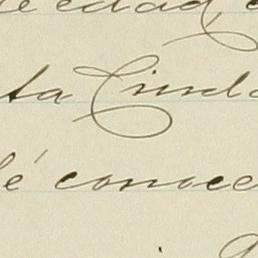 edad,
ta Ciuda
é conoce